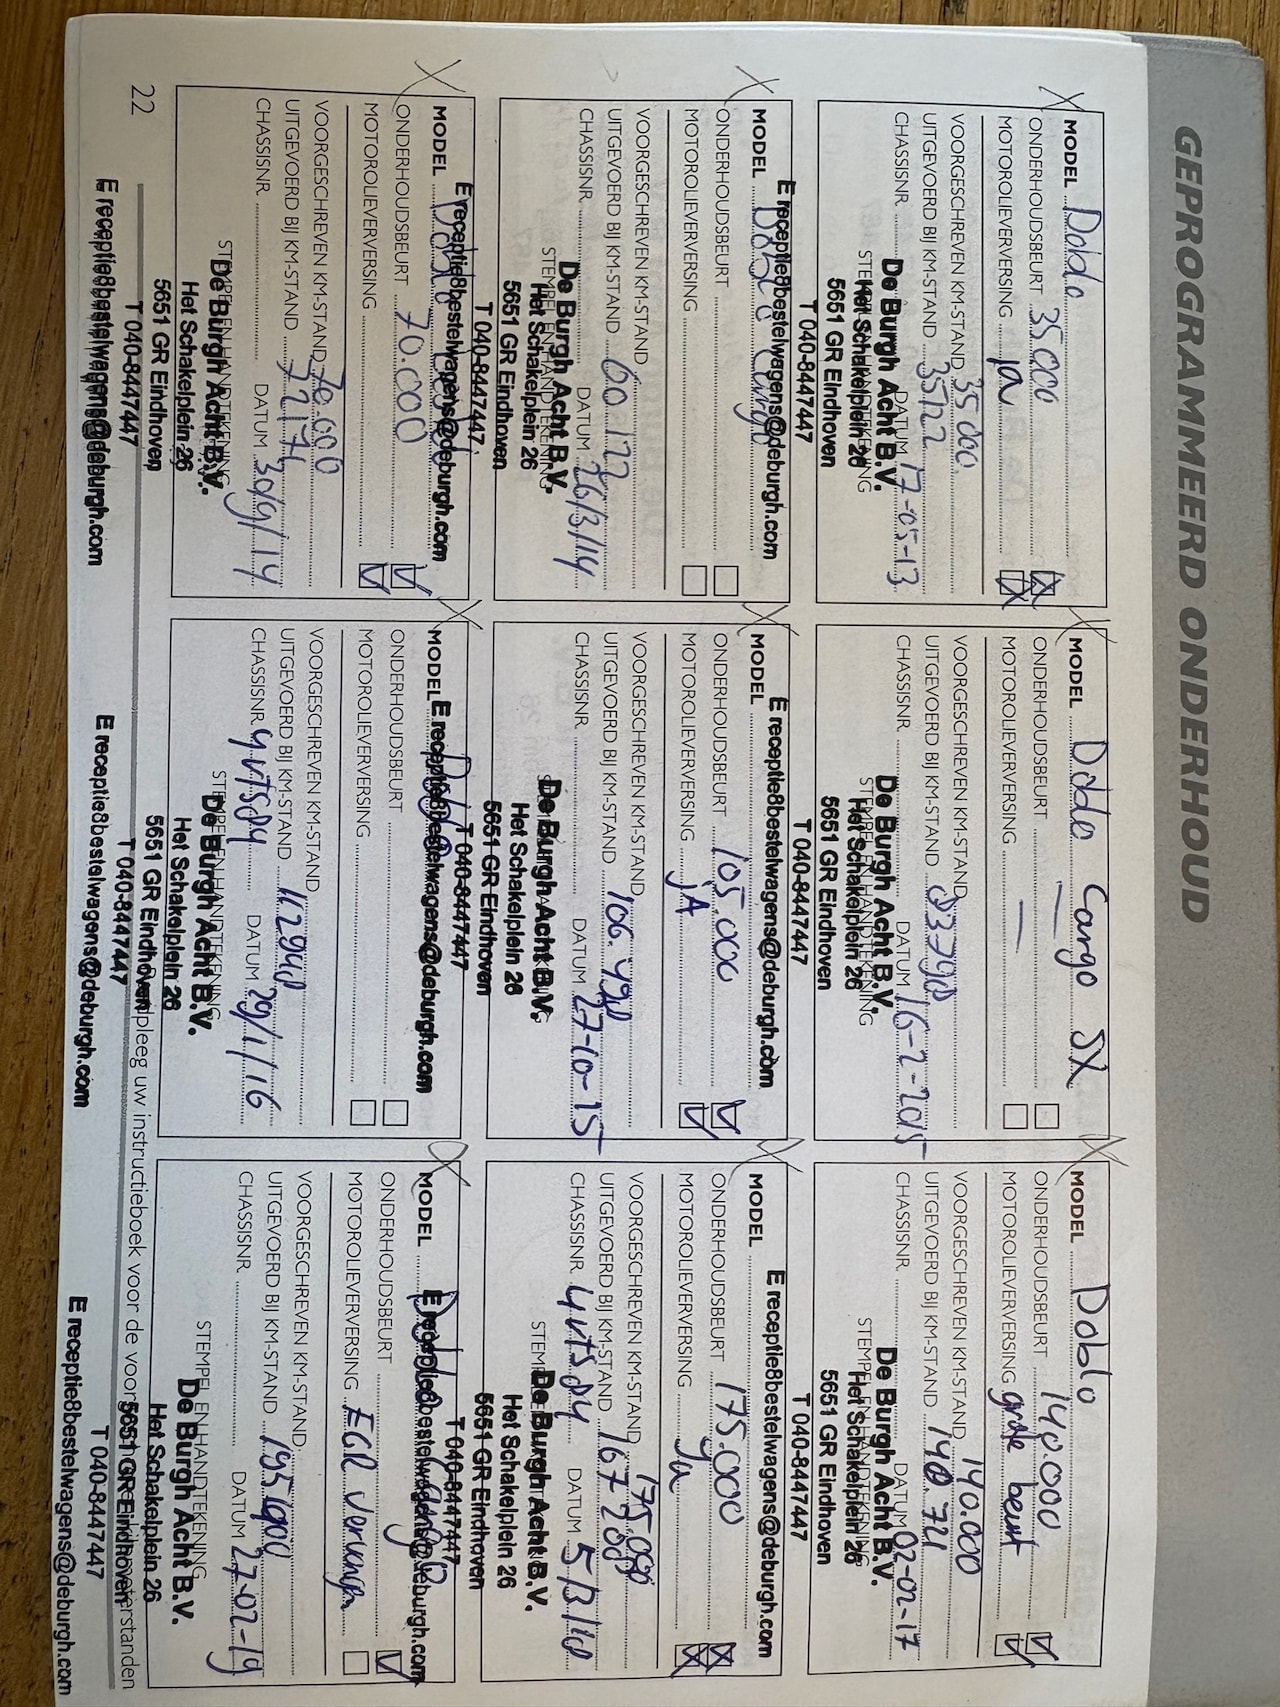 GEPROGRAMMEERD ONDERHOUD
MODEL Doblo
ONDERHOUDSBEURT 35000
MOTOROLIEVERVERSING ja
VOORGESCHREVEN KM-STAND 35000
UITGEVOERD BIJ KM-STAND 35122
CHASSISNR. DATUM 17-05-13
STEMPEL EN HANDTEKENING
De Burgh Acht B.V.
Het Schakelplein 26
5651 GR Eindhoven
T 040-8447447
E receptie8bestelwagens@deburgh.com
MODEL Doblo Cargo
ONDERHOUDSBEURT
MOTOROLIEVERVERSING
VOORGESCHREVEN KM-STAND
UITGEVOERD BIJ KM-STAND 60.122
CHASSISNR. DATUM 26/3/14
STEMPEL EN HANDTEKENING
De Burgh Acht B.V.
Het Schakelplein 26
5651 GR Eindhoven
T 040-8447447
E receptie8bestelwagens@deburgh.com
MODEL Doblo
ONDERHOUDSBEURT 70.000
MOTOROLIEVERVERSING
VOORGESCHREVEN KM-STAND 70.000
UITGEVOERD BIJ KM-STAND 72174
CHASSISNR. DATUM 30/9/14
STEMPEL EN HANDTEKENING
De Burgh Acht B.V.
Het Schakelplein 26
5651 GR Eindhoven
T 040-8447447
E receptie8bestelwagens@deburgh.com
MODEL Doblo Cargo SX
ONDERHOUDSBEURT —
MOTOROLIEVERVERSING —
VOORGESCHREVEN KM-STAND
UITGEVOERD BIJ KM-STAND 83798
CHASSISNR. DATUM 16-2-2015
STEMPEL EN HANDTEKENING
De Burgh Acht B.V.
Het Schakelplein 26
5651 GR Eindhoven
T 040-8447447
E receptie8bestelwagens@deburgh.com
MODEL
ONDERHOUDSBEURT 105.000
MOTOROLIEVERVERSING jA
VOORGESCHREVEN KM-STAND
UITGEVOERD BIJ KM-STAND 106.498
CHASSISNR. DATUM 27-10-15
De Burgh Acht B.V.
Het Schakelplein 26
5651 GR Eindhoven
T 040-8447447
E receptie8bestelwagens@deburgh.com
MODEL Doblo
ONDERHOUDSBEURT
MOTOROLIEVERVERSING
VOORGESCHREVEN KM-STAND
UITGEVOERD BIJ KM-STAND 112948
CHASSISNR. DATUM 29/1/16
STEMPEL EN HANDTEKENING
De Burgh Acht B.V.
Het Schakelplein 26
5651 GR Eindhoven
T 040-8447447
E receptie8bestelwagens@deburgh.com
MODEL Doblo
ONDERHOUDSBEURT 140.000
MOTOROLIEVERVERSING grote beurt
VOORGESCHREVEN KM-STAND 140.000
UITGEVOERD BIJ KM-STAND 140.721
CHASSISNR. DATUM 02-02-17
STEMPEL EN HANDTEKENING
De Burgh Acht B.V.
Het Schakelplein 26
5651 GR Eindhoven
T 040-8447447
E receptie8bestelwagens@deburgh.com
MODEL
ONDERHOUDSBEURT 175.000
MOTOROLIEVERVERSING Ja
VOORGESCHREVEN KM-STAND 175.000
UITGEVOERD BIJ KM-STAND 167200
CHASSISNR. DATUM 5/3/18
De Burgh Acht B.V.
Het Schakelplein 26
5651 GR Eindhoven
T 040-8447447
E receptie8bestelwagens@deburgh.com
MODEL
ONDERHOUDSBEURT
MOTOROLIEVERVERSING EGR vervangen
VOORGESCHREVEN KM-STAND
UITGEVOERD BIJ KM-STAND 195900
CHASSISNR. DATUM 27-02-19
STEMPEL EN HANDTEKENING
De Burgh Acht B.V.
Het Schakelplein 26
5651 GR Eindhoven
T 040-8447447
E receptie8bestelwagens@deburgh.com
22
pleeg uw instructieboek voor de kilometerstanden